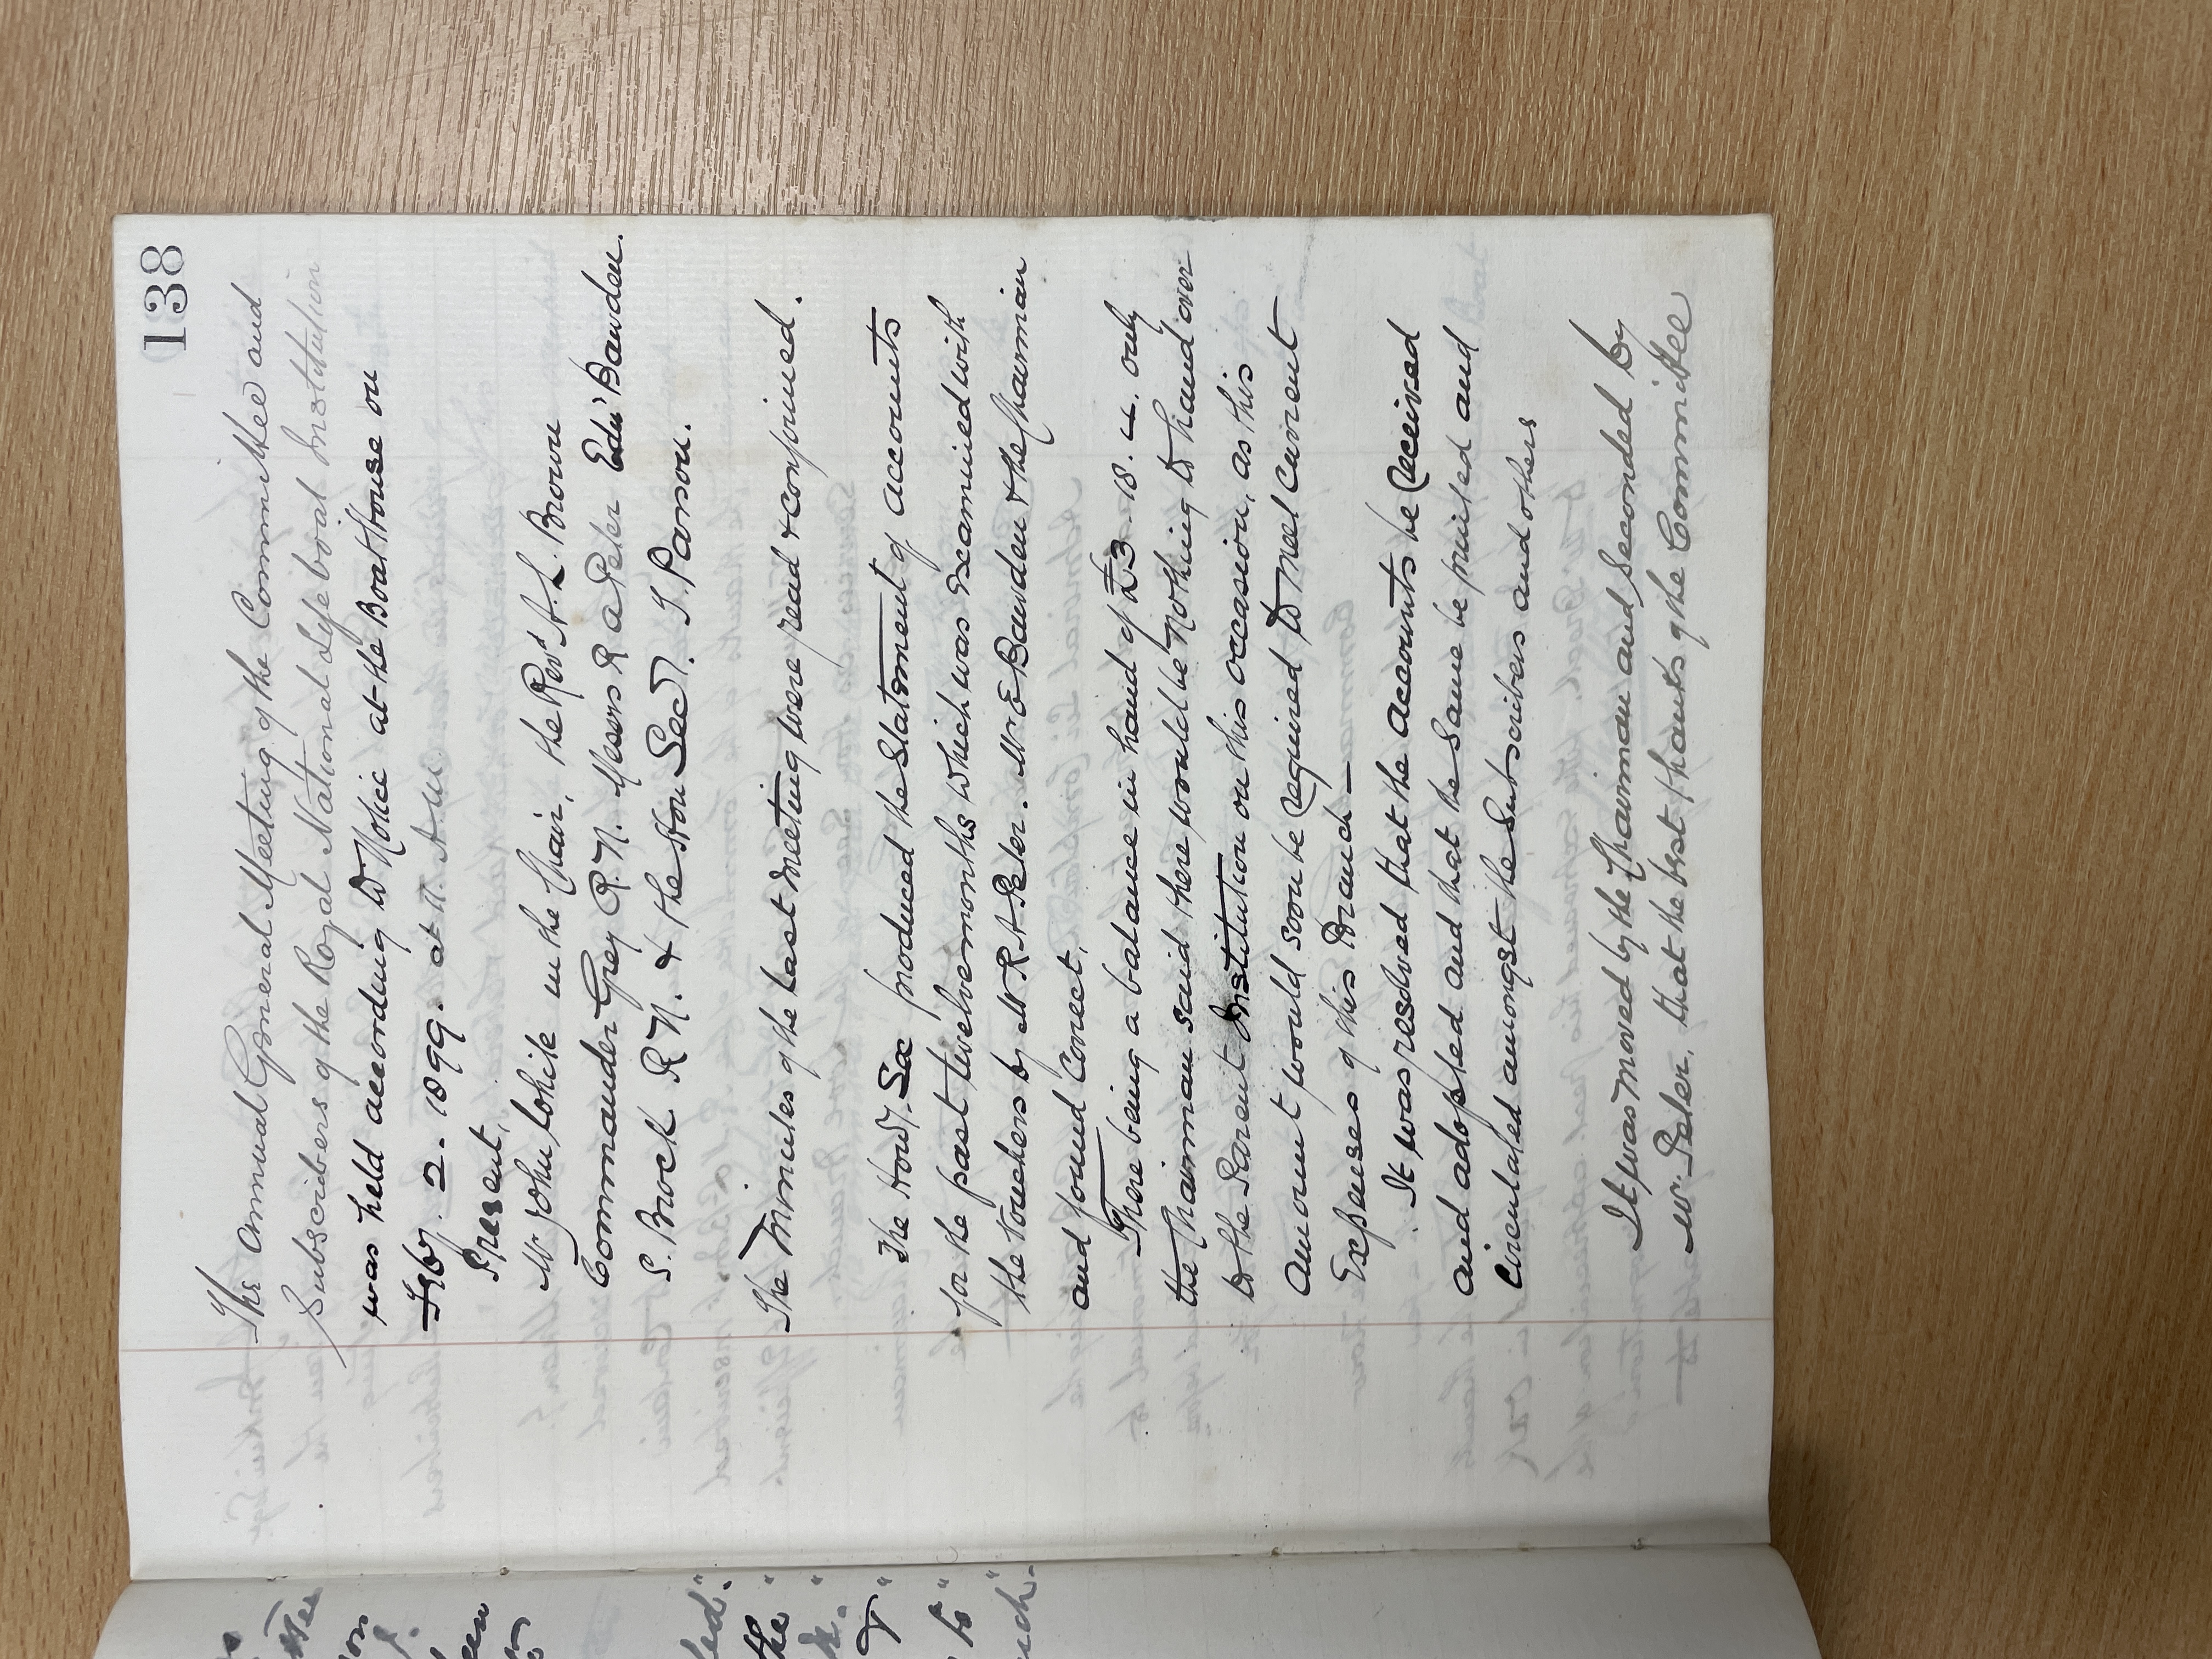 138
The Annual General Meeting of the Committee and
Subscribers of the Royal National Lifeboat Institution
was held according to Notice at the Boat House on
Feby. 2. 1899. at 11 A.M
Present,
Mr John Lokile in the Chair, the Revd A. L. Brown
Commander Grey R.N. Messrs R a Peter Edw Bawden.
S. Brock R N. & the Hon Secy. T. Parson.
The Minutes of the last meeting were read & confirmed.
The Hony. Sec produced the Statement of accounts
for the past twelve months which was examined with
the Vouchers by Mr. R A Peter. Mr E Bawden & the Chairman
and found Correct.
There being a balance in hand of £3. 18. 4. only
the Chairman said there would be Nothing to hand over
to the Parent Institution on this occasion, as this
Amount would soon be required to meet current
Expenses of this Branch —
It was resolved that the accounts be received
and adopted and that the same be printed and
Circulated amongst the Subscribers and others
It was moved by the Chairman and seconded by
Mr. Peter, that the best thanks of the Committee